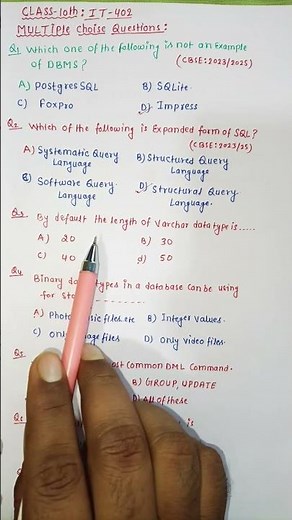 CLASS-10th: IT-402
MULTIPLE Choise Questions:
Q1 Which one of the following is not an Example
of DBMS?
(CBSE:2023/2025)
A) PostgresSQL B) SQLite.
C) Foxpro D) Impress
Q2 Which of the following is Expanded form of SQL?
(CBSE:2023/25)
A) Systematic Query Language B) Structured Query Language
C) Software Query Language D) Structural Query Language.
Q3 By default the length of Varchar data type is.....
A) 20 B) 30
C) 40 d) 50
Q4 Binary data types in a database can be using
for
A) Photo files etc B) Integer values.
C) only files D) only video files.
Q5 most common DML command.
B) GROUP, UPDATE
D) All of these
is